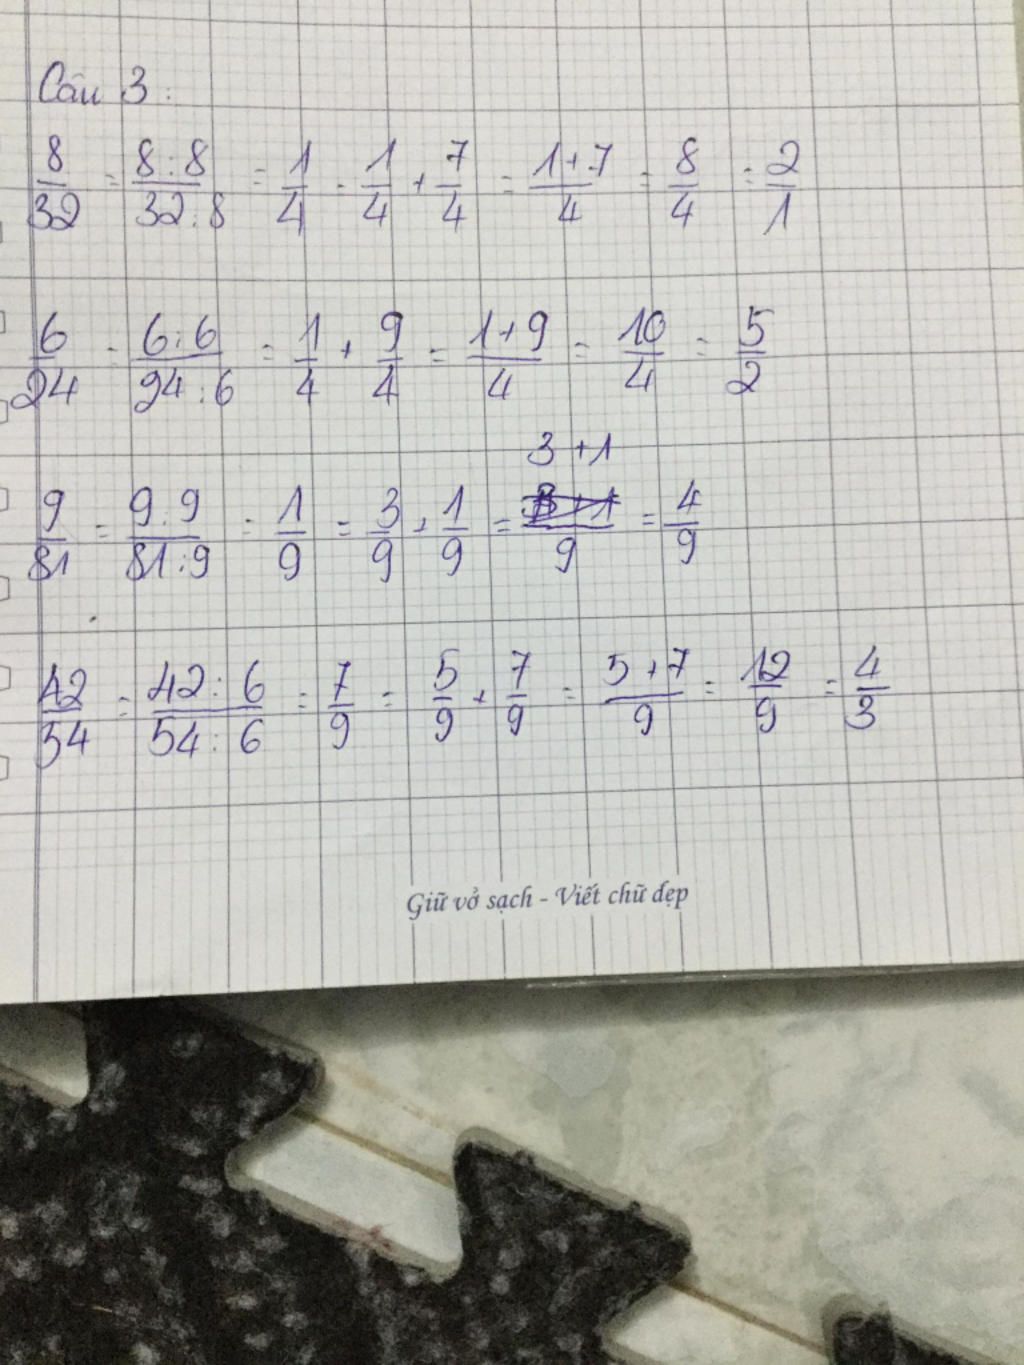 Câu 3:
8/32 = 8:8/32:8 = 1/4 = 1/4 + 7/4 = 1+7/4 = 8/4 = 2/1
6/24 = 6:6/24:6 = 1/4 + 9/4 = 1+9/4 = 10/4 = 5/2
9/81 = 9:9/81:9 = 1/9 = 3/9 + 1/9 = 3+1/9 = 4/9
42/54 = 42:6/54:6 = 7/9 = 5/9 + 7/9 = 5+7/9 = 12/9 = 4/3
Giữ vở sạch - Viết chữ đẹp